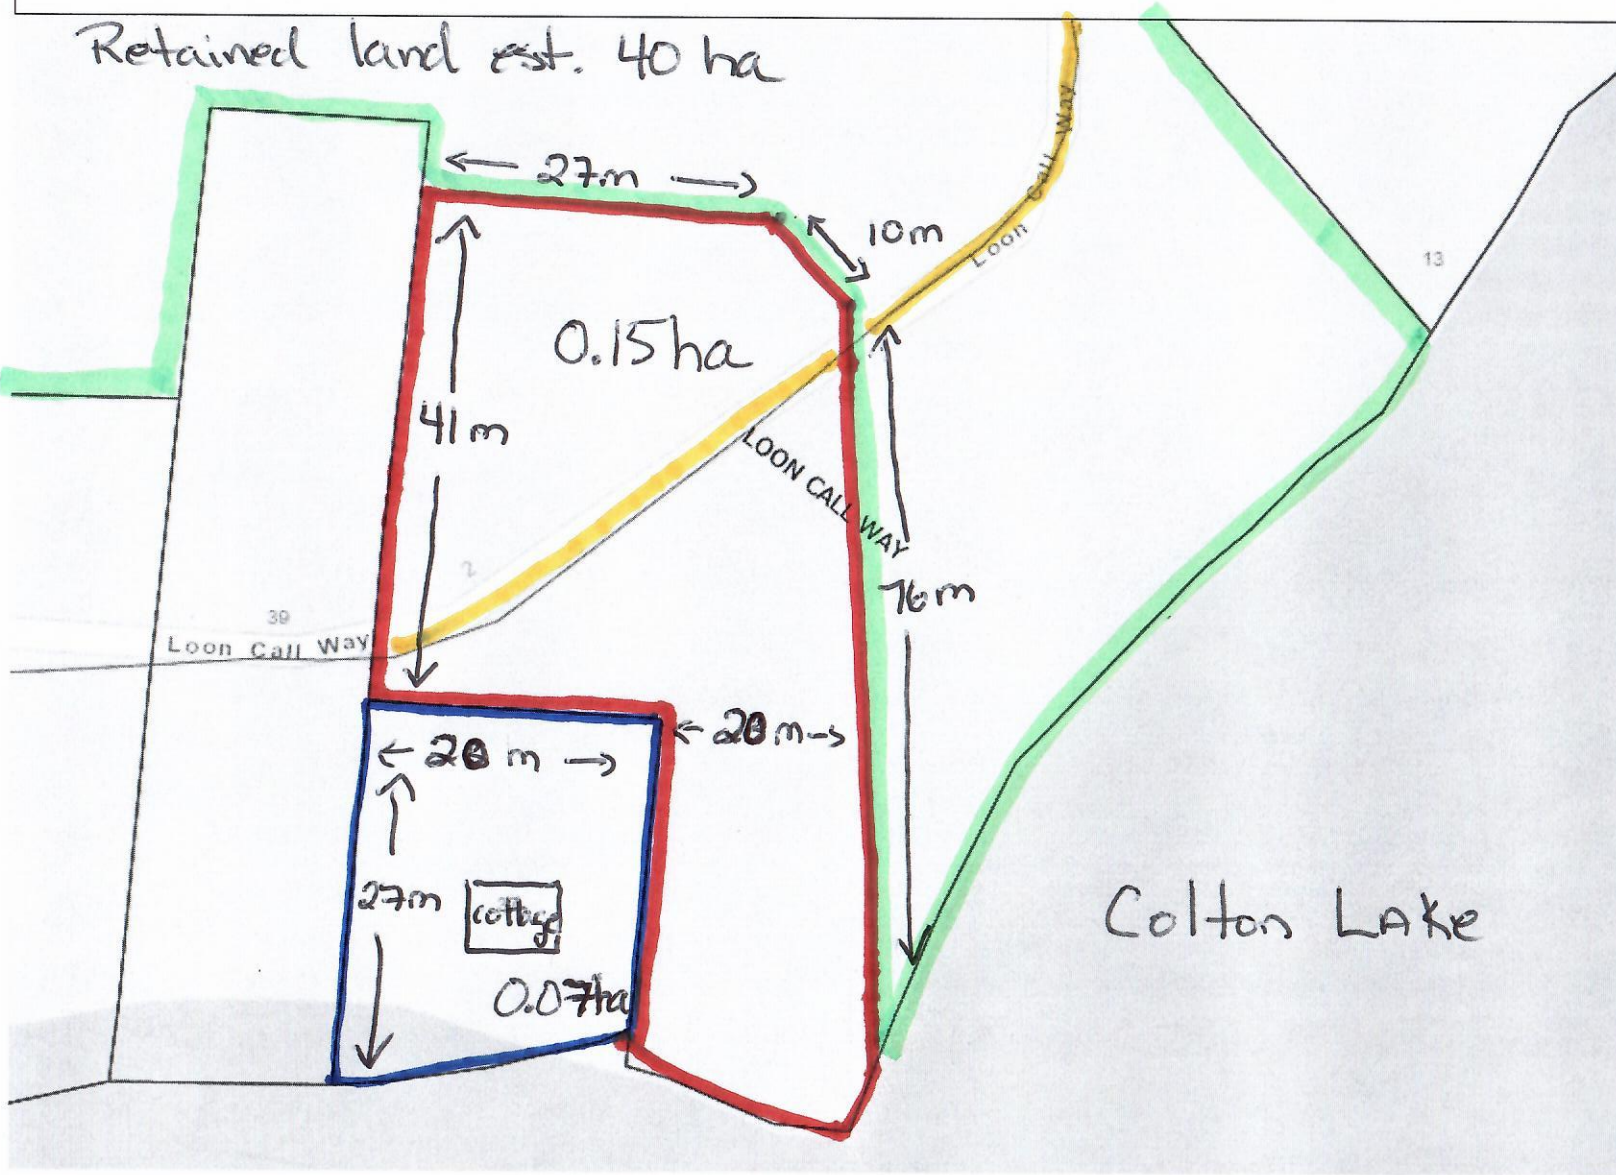 Retained land est. 40 ha
← 27m →
10m
Loon Call Way
13
0.15ha
41m
LOON CALL WAY
2
76m
39
Loon Call Way
← 20 m →
← 20 m →
27m
cottage
0.07ha
Colton LAKe